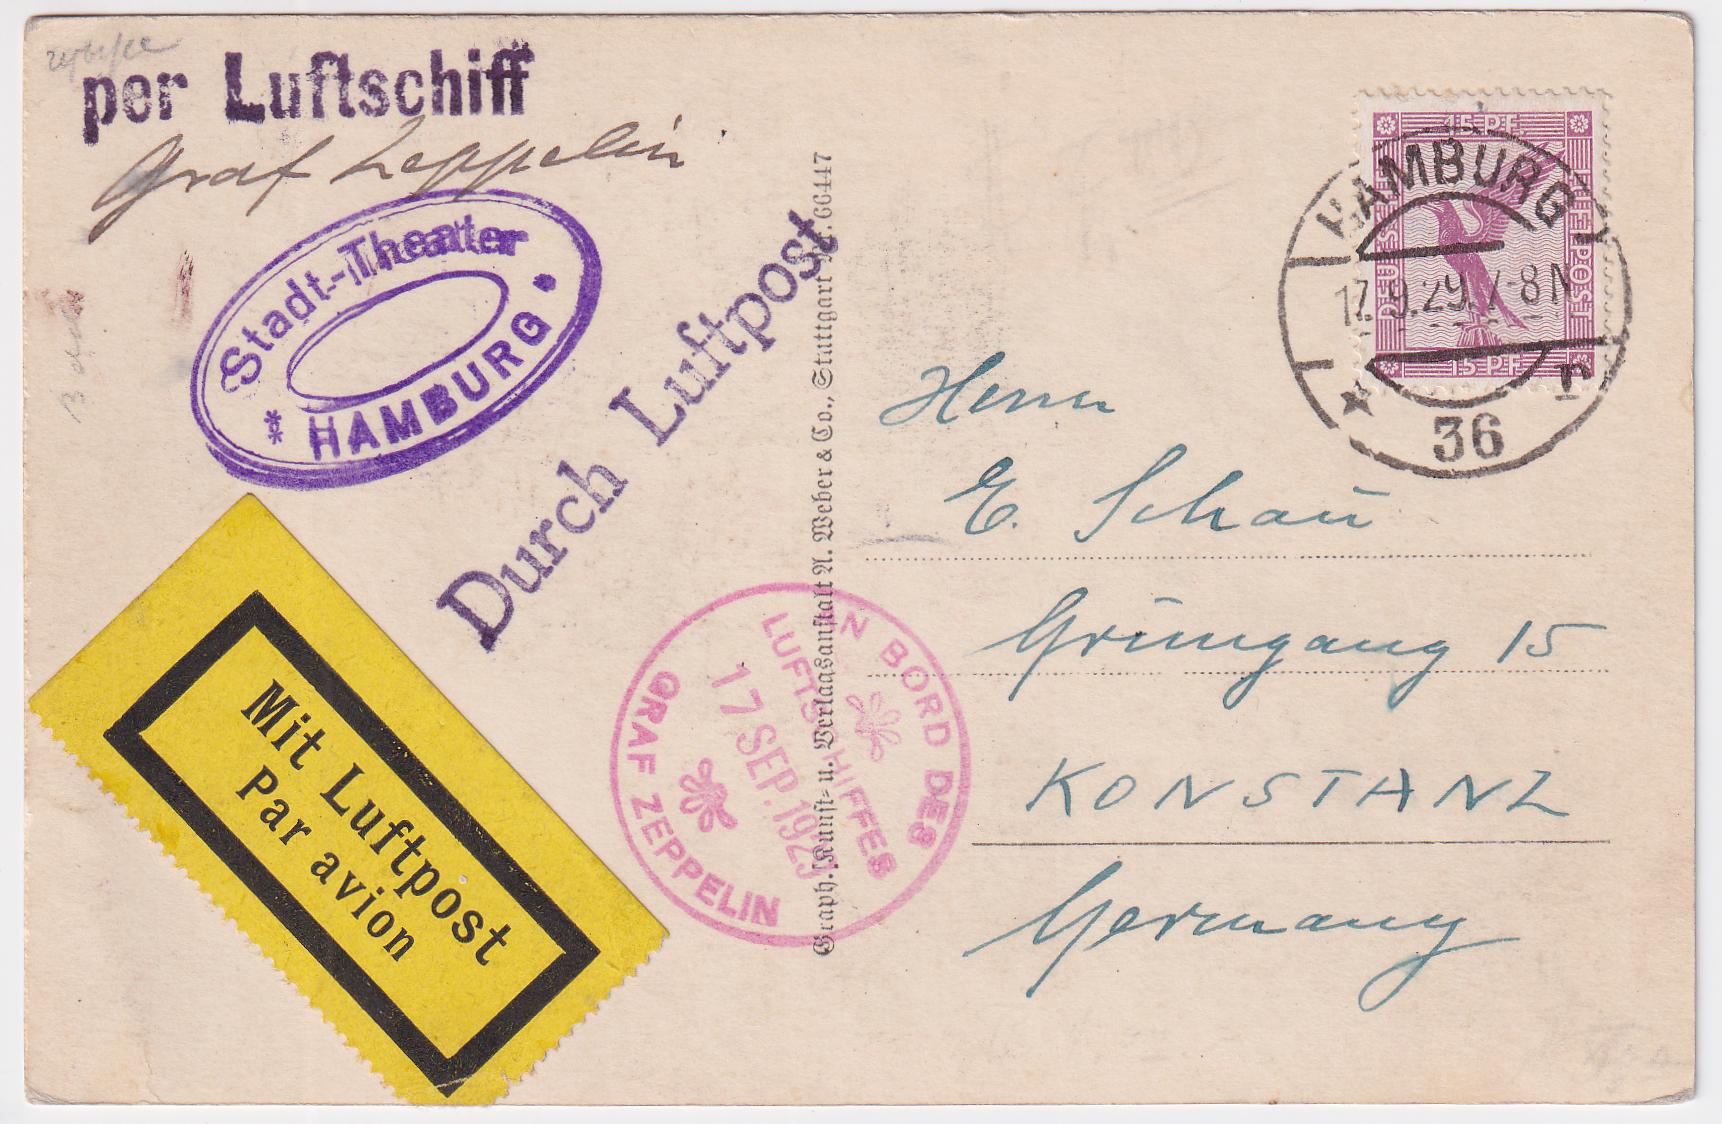 per Luftschiff
Graf Zeppelin
Stadt-Theater
* HAMBURG *
Durch Luftpost
Mit Luftpost
Par avion
AN BORD DES
LUFTSCHIFFES
17 SEP. 1929
GRAF ZEPPELIN
Graph. Kunst- u. Verlagsanstalt A. Weber & Co., Stuttgart Nr. 66447
15 PF.
DEUTSCHE
FLUGPOST
15 PF.
HAMBURG
17.9.29.7-8N
* 36 n
Herrn
E. Schau
Grüngang 15
KONSTANZ
Germany